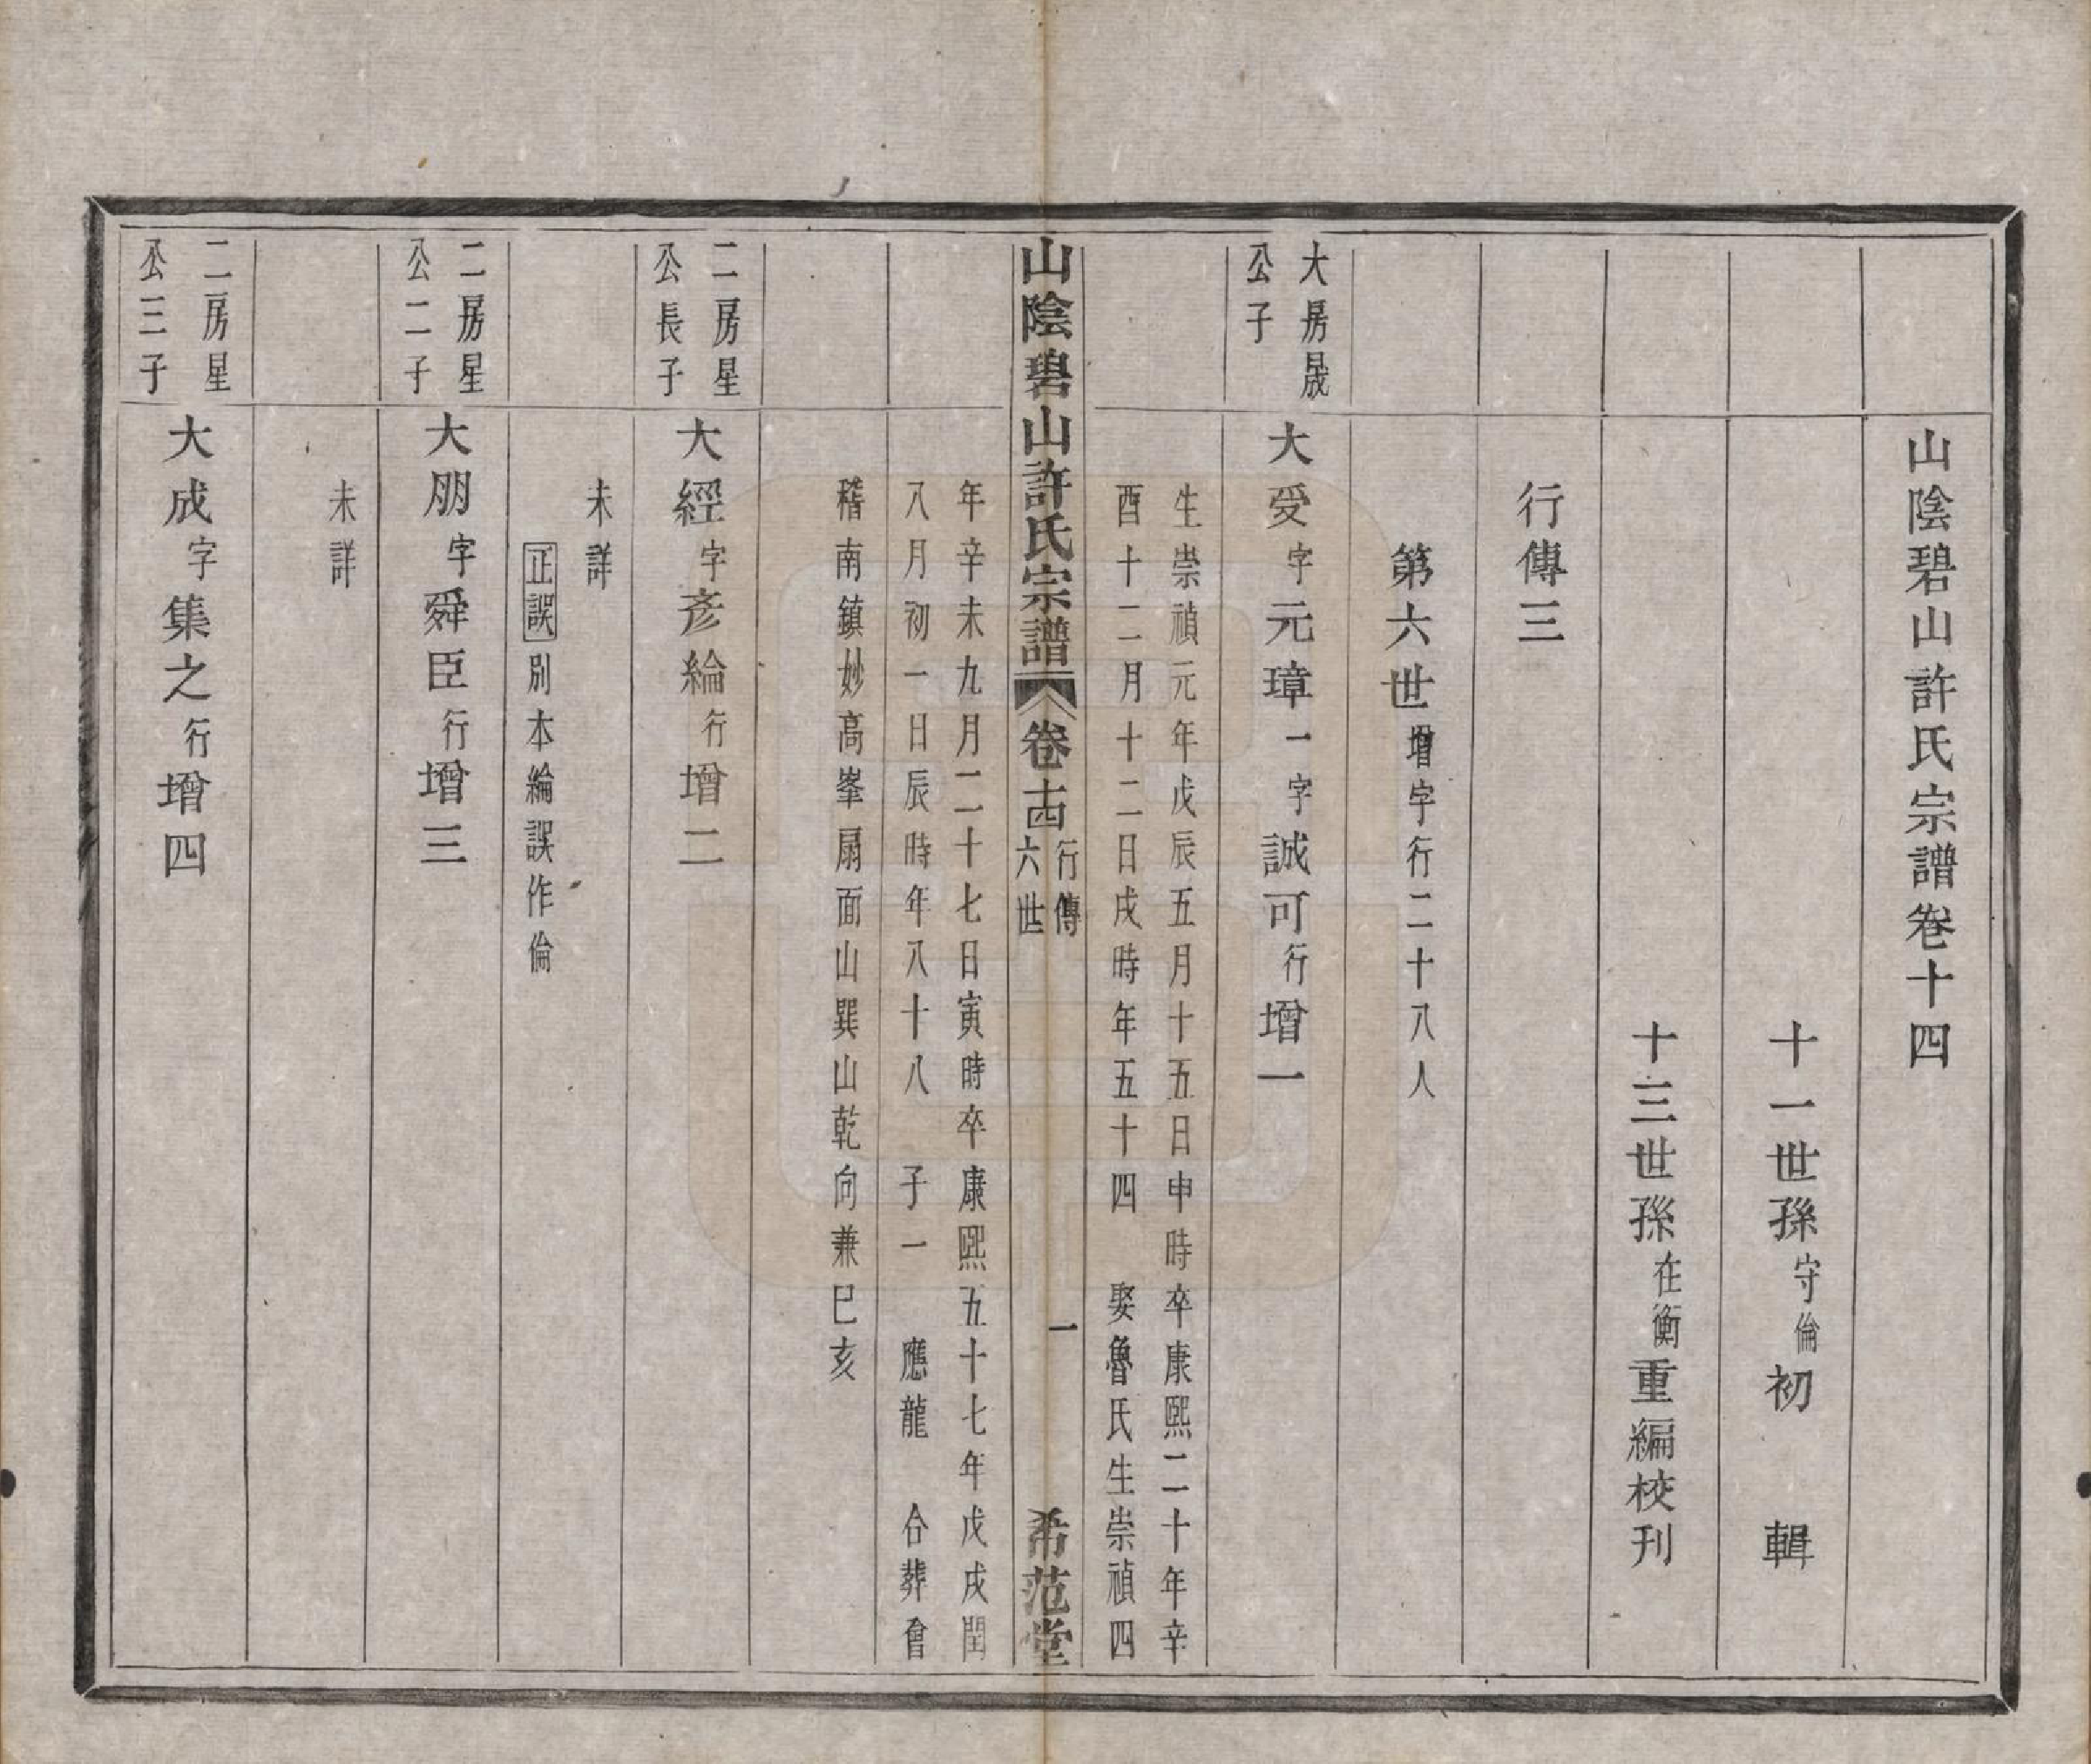 山陰碧山許氏宗譜卷十四
十一世孫守倫初　輯
十三世孫在衡重編校刊
行傳三
第六世增字行二十八人
大房晟
公子
大受字元璋一字誠可行增一
生崇禎元年戊辰五月十五日申時卒康熙二十年辛
酉十二月十二日戌時年五十四　娶魯氏生崇禎四
山陰碧山許氏宗譜　卷十四　行傳　六世　一　希范堂
年辛未九月二十七日寅時卒康熙五十七年戊戌閏
八月初一日辰時年八十八　子一　應龍　合葬會
稽南鎮妙高峯扇面山巽山乾向兼巳亥
二房星
公長子
大經字彥綸行增二
未詳
正誤別本綸誤作倫
二房星
公二子
大朋字舜臣行增三
未詳
二房星
公三子
大成字集之行增四